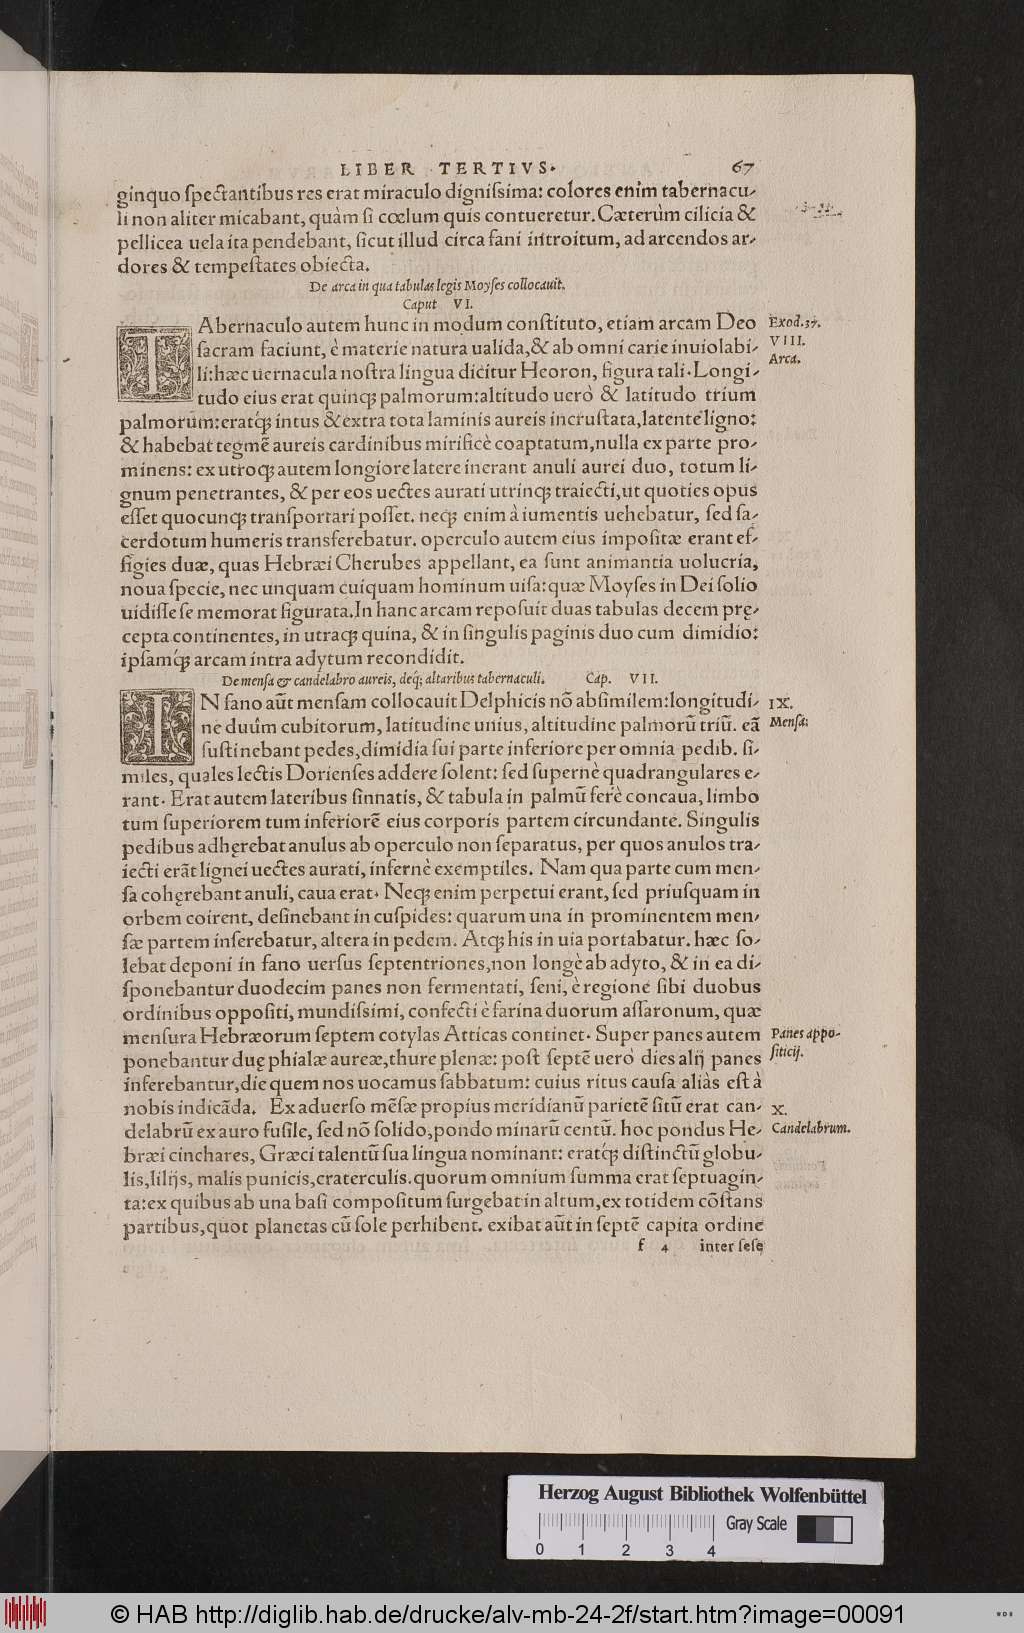 LIBER TERTIVS. 67
ginquo spectantibus res erat miraculo dignissima: colores enim tabernacu-
li non aliter micabant, quàm si cœlum quis contueretur. Cæterùm cilicia &
pellicea uela ita pendebant, sicut illud circa fani introitum, ad arcendos ar-
dores & tempestates obiecta.
De arca in qua tabulas legis Moyses collocauit.
Caput VI.
TAbernaculo autem hunc in modum constituto, etiam arcam Deo
Exod.37.
sacram faciunt, è materie natura ualida, & ab omni carie inuiolabi-
VIII.
li: hæc uernacula nostra lingua dicitur Heoron, figura tali. Longi-
Arca.
tudo eius erat quinq; palmorum: altitudo uerò & latitudo trium
palmorum: eratq́; intus & extra tota laminis aureis incrustata, latente ligno:
& habebat tegmē aureis cardinibus mirificè coaptatum, nulla ex parte pro-
minens: ex utroq; autem longiore latere inerant anuli aurei duo, totum li-
gnum penetrantes, & per eos uectes aurati utrinq; traiecti, ut quoties opus
esset quocunq; transportari posset. neq; enim à iumentis uehebatur, sed sa-
cerdotum humeris transferebatur. operculo autem eius impositæ erant ef-
figies duæ, quas Hebræi Cherubes appellant, ea sunt animantia uolucria,
noua specie, nec unquam cuiquam hominum uisa: quæ Moyses in Dei solio
uidisse se memorat figurata. In hanc arcam reposuit duas tabulas decem prę-
cepta continentes, in utraq; quina, & in singulis paginis duo cum dimidio:
ipsamq́; arcam intra adytum recondidit.
De mensa & candelabro aureis, deq; altaribus tabernaculi. Cap. VII.
IN fano aūt mensam collocauit Delphicis nō absimilem: longitudi-
IX.
ne duûm cubitorum, latitudine unius, altitudine palmorū triū. eā
Mensa:
sustinebant pedes, dimidia sui parte inferiore per omnia pedib. si-
miles, quales lectis Dorienses addere solent: sed supernè quadrangulares e-
rant. Erat autem lateribus sinnatis, & tabula in palmū ferè concaua, limbo
tum superiorem tum inferiorē eius corporis partem circundante. Singulis
pedibus adhęrebat anulus ab operculo non separatus, per quos anulos tra-
iecti erāt lignei uectes aurati, infernè exemptiles. Nam qua parte cum men-
sa cohęrebant anuli, caua erat. Neq; enim perpetui erant, sed priusquam in
orbem coirent, desinebant in cuspides: quarum una in prominentem men-
sæ partem inserebatur, altera in pedem. Atq; his in uia portabatur. hæc so-
lebat deponi in fano uersus septentriones, non longè ab adyto, & in ea di-
sponebantur duodecim panes non fermentati, seni, è regione sibi duobus
ordinibus oppositi, mundissimi, confecti è farina duorum assaronum, quæ
mensura Hebræorum septem cotylas Atticas continet. Super panes autem
Panes appo-
ponebantur duę phialæ aureæ, thure plenæ: post septē uerò dies alij panes
siticij.
inferebantur, die quem nos uocamus sabbatum: cuius ritus causa aliàs est à
nobis indicāda. Ex aduerso mēsæ propius meridianū parietē sitū erat can-
X.
delabrū ex auro fusile, sed nō solido, pondo minarū centū. hoc pondus He-
Candelabrum.
bræi cinchares, Græci talentū sua lingua nominant: eratq́; distinctū globu-
lis, lilijs, malis punicis, craterculis. quorum omnium summa erat septuagin-
ta: ex quibus ab una basi compositum surgebat in altum, ex totidem cōstans
partibus, quot planetas cū sole perhibent. exibat aūt in septē capita ordine
f 4 inter sese
Herzog August Bibliothek Wolfenbüttel
Gray Scale
0 1 2 3 4
© HAB http://diglib.hab.de/drucke/alv-mb-24-2f/start.htm?image=00091